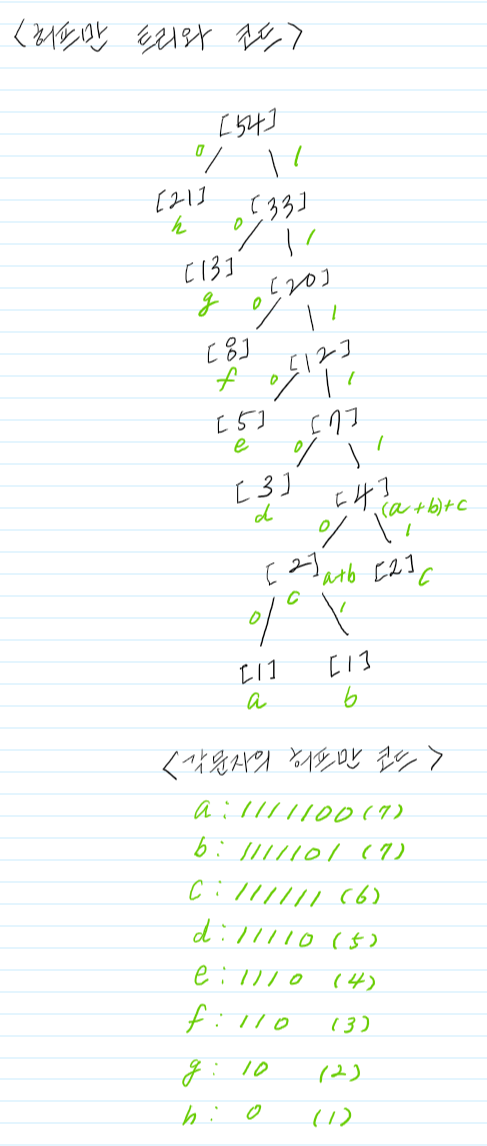 <허프만 트리와 코드>
[54]
0 1
[21] [33]
h 0 1
[13] [20]
g 0 1
[8] [12]
f 0 1
[5] [7]
e 0 1
[3] [4] (a+b)+c
d 0 1
[2] a+b [2] c
c
0 1
[1] [1]
a b
<각문자의 허프만 코드>
a : 1111100 (7)
b : 1111101 (7)
c : 111111 (6)
d : 11110 (5)
e : 1110 (4)
f : 110 (3)
g : 10 (2)
h : 0 (1)